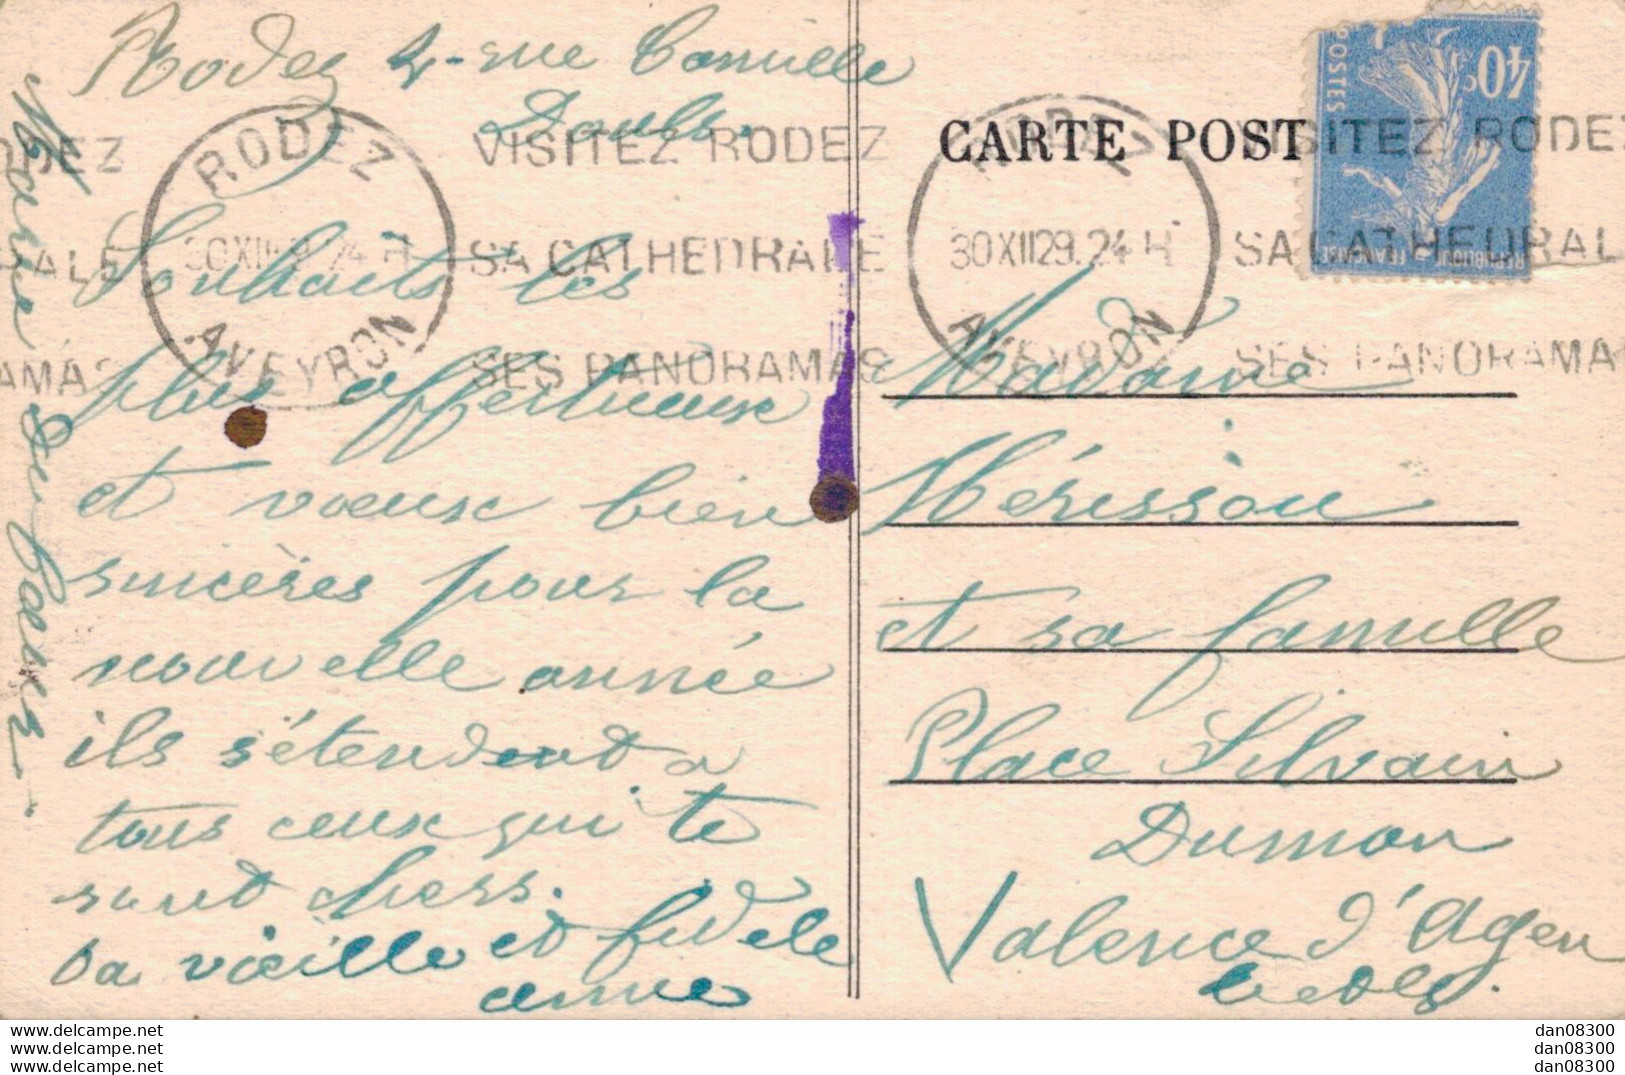 Rodez 4 - rue Camille
Douls.
RODEZ
AVEYRON
VISITEZ RODEZ
SA CATHEDRALE
SES PANORAMAS
Souhaits les
plus affectueux
et voeux bien
sincères pour la
nouvelle année
ils s'étendent a
tous ceux qui te
sont chers.
ta vieille et fidele
amie
Marie
CARTE POST
RODEZ
30 XII 29. 24 H
AVEYRON
VISITEZ RODEZ
SA CATHEDRAL
SES PANORAMA
40c
POSTES
REPUBLIQUE FRANÇAISE
Madame
Hérisson
et sa famille
Place Silvain
Dumon
Valence d'Agen
www.delcampe.net
www.delcampe.net
www.delcampe.net
dan08300
dan08300
dan08300